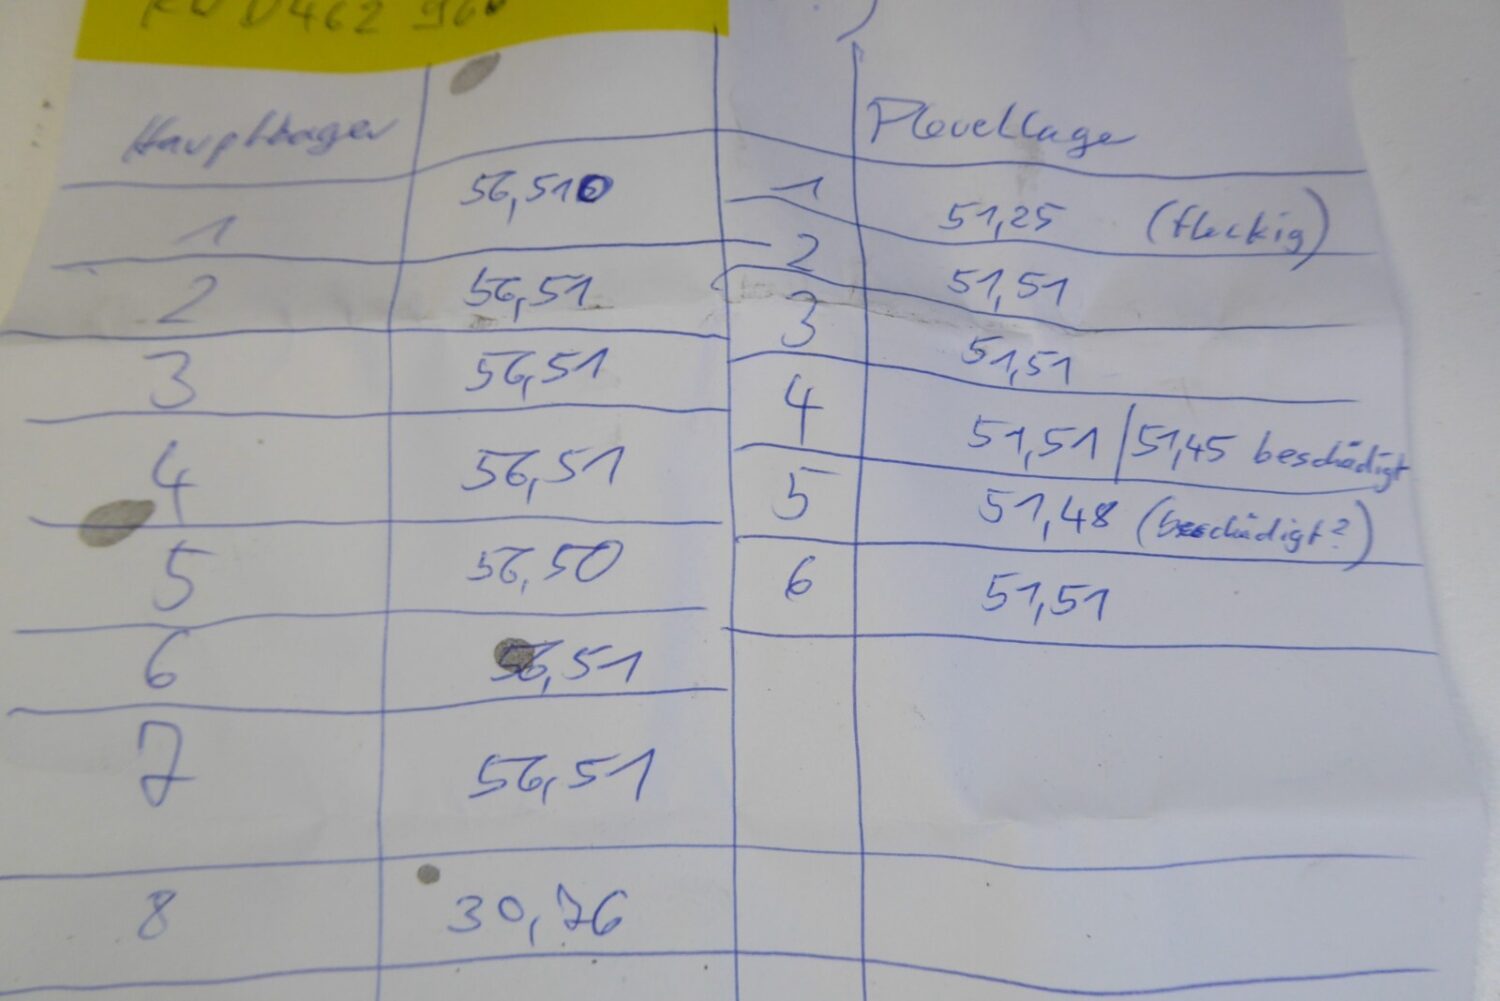 D462 960
Hauptlager
Pleuellage
1 56,510
2 56,51
3 56,51
4 56,51
5 56,50
6 56,51
7 56,51
8 30,76
1 51,25 (fleckig)
2 51,51
3 51,51
4 51,51 | 51,45 beschädigt
5 51,48 (beschädigt?)
6 51,51